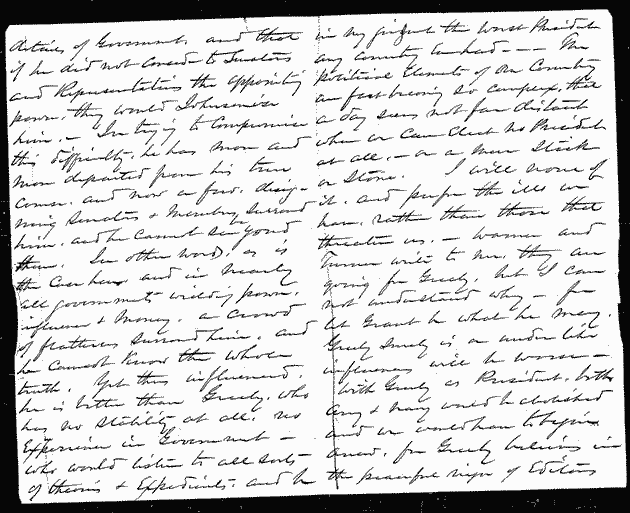 details of Government, and that
if he did not consent to Senators
and Representatives the appointing
power, they would Johnsonise
him. - In trying to compromise
this difficulty, he has more and
more departed from his true
course, and now a few design-
ing Senators & Members, surround
him, and he cannot see beyond
them. In other words, as is
the case here and in nearly
all governments wielding power,
influence & money, a crowd
of flatterers surround him, and
he cannot know the whole
truth. Yet thus influenced,
he is better than Greeley, who
has no stability at all, no
Experience in Government -
who would listen to all sorts
of theories & Expedients, and be
in my judgt the worst President
any country Ever had - - - The
political Elements of our Country
are fast becoming so complex, that
a day seems not far distant
when we can Elect no President
at all, - or a mere Stick
or Stone. I will none of
it, and prefer the ills we
have, rather than those that
threaten us. - Warner and
Turner write to me, they are
going for Greely, but I can
not understand why - for
let Grant be what he may,
Greely surely is or under like
influences will be worse -
with Greely as President, both
Army & Navy would be abolished
and we would have to begin
anew, for Greely believes in
the peaceful reign of Editors